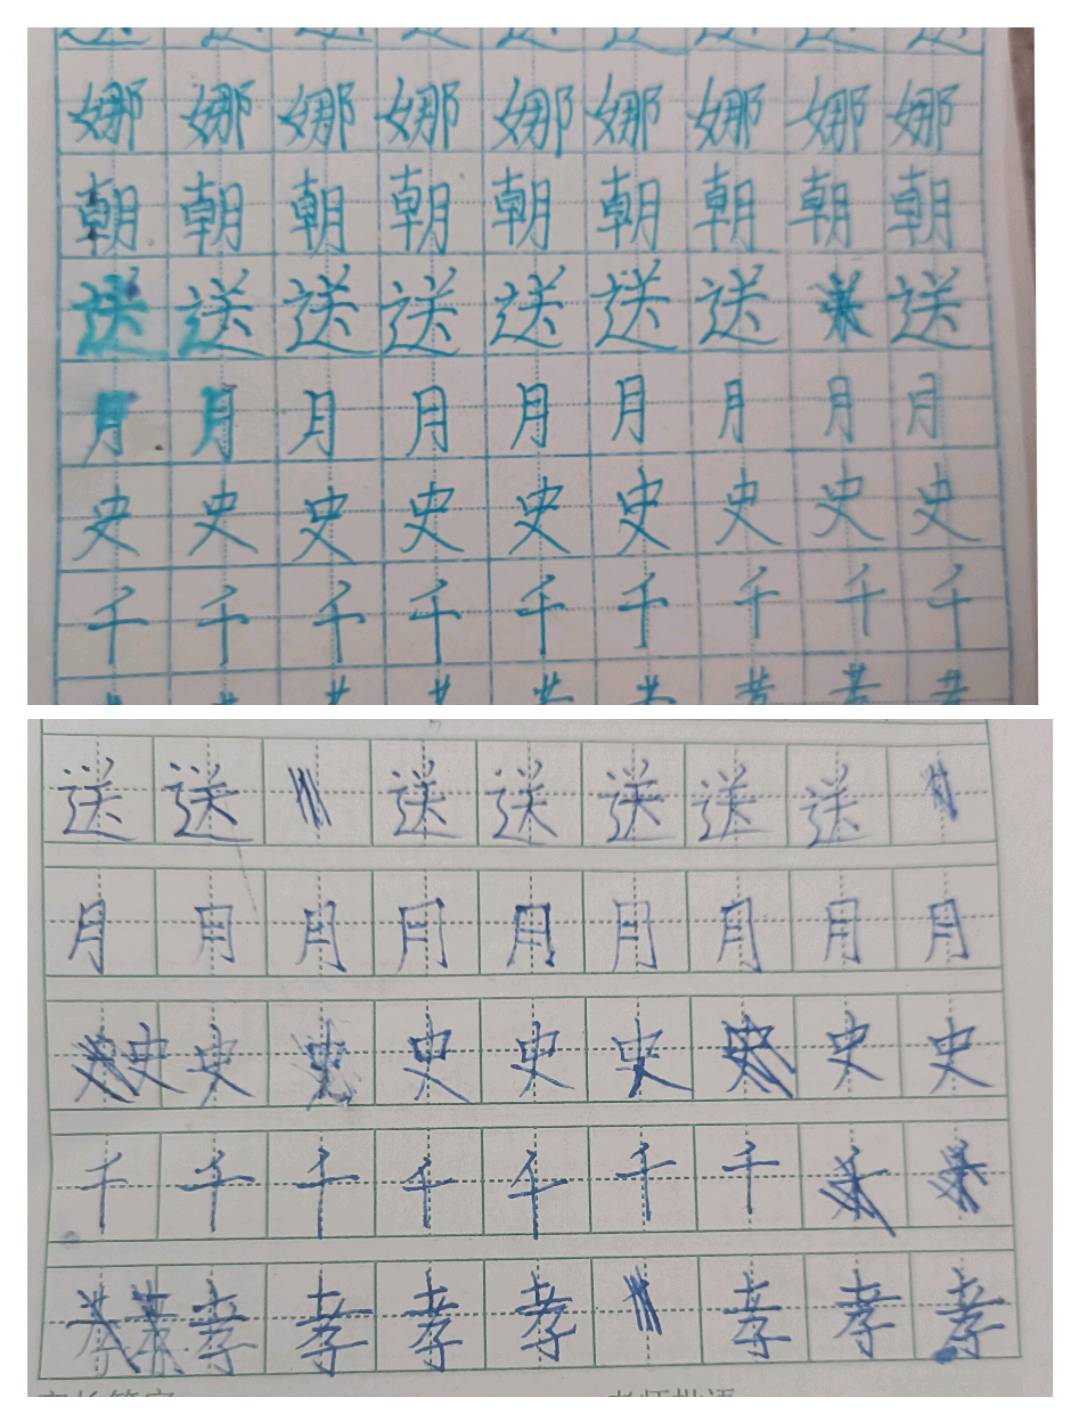 娜娜娜娜娜娜娜娜娜
朝朝朝朝朝朝朝朝朝
送送送送送送送送
月月月月月月月月月
史史史史史史史史史
千千千千千千千千千
送送送送送送送
月月月月月月月月月
史史史史史史史
千千千千千千千
孝孝孝孝孝孝孝
家长签字 老师批语